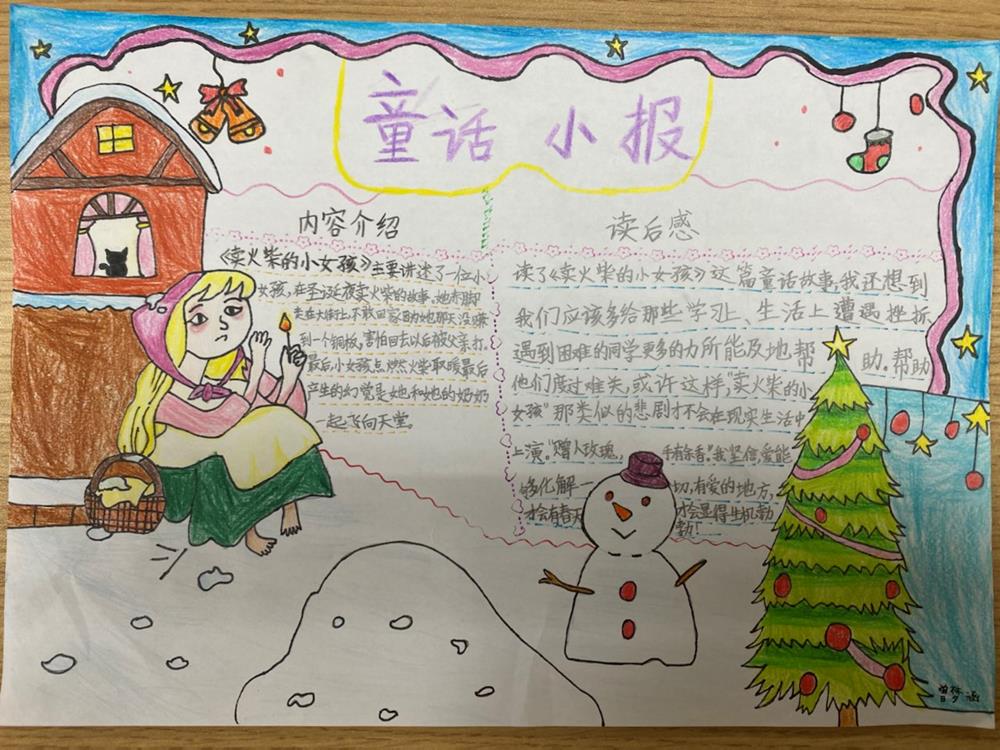 童话 小报
内容介绍
《卖火柴的小女孩》主要讲述了一位小
女孩,在圣诞夜卖火柴的故事,她赤脚
走在大街上,不敢回家因为她那天没赚
到一个铜板,害怕回去以后被父亲打,
最后,小女孩点燃火柴取暖最后
产生的幻觉是她和她的奶奶
一起飞向天堂。
读后感
读了《卖火柴的小女孩》这篇童话故事,我还想到
我们应该多给那些学习上、生活上遭遇挫折
遇到困难的同学更多的力所能及地帮助。帮助
他们度过难关,或许这样,"卖火柴的小
女孩"那类似的悲剧才不会在现实生活中
上演。"赠人玫瑰,手有余香。"我坚信爱能
够化解一切,有爱的地方,
才会有春天才会显得生机勃
勃!